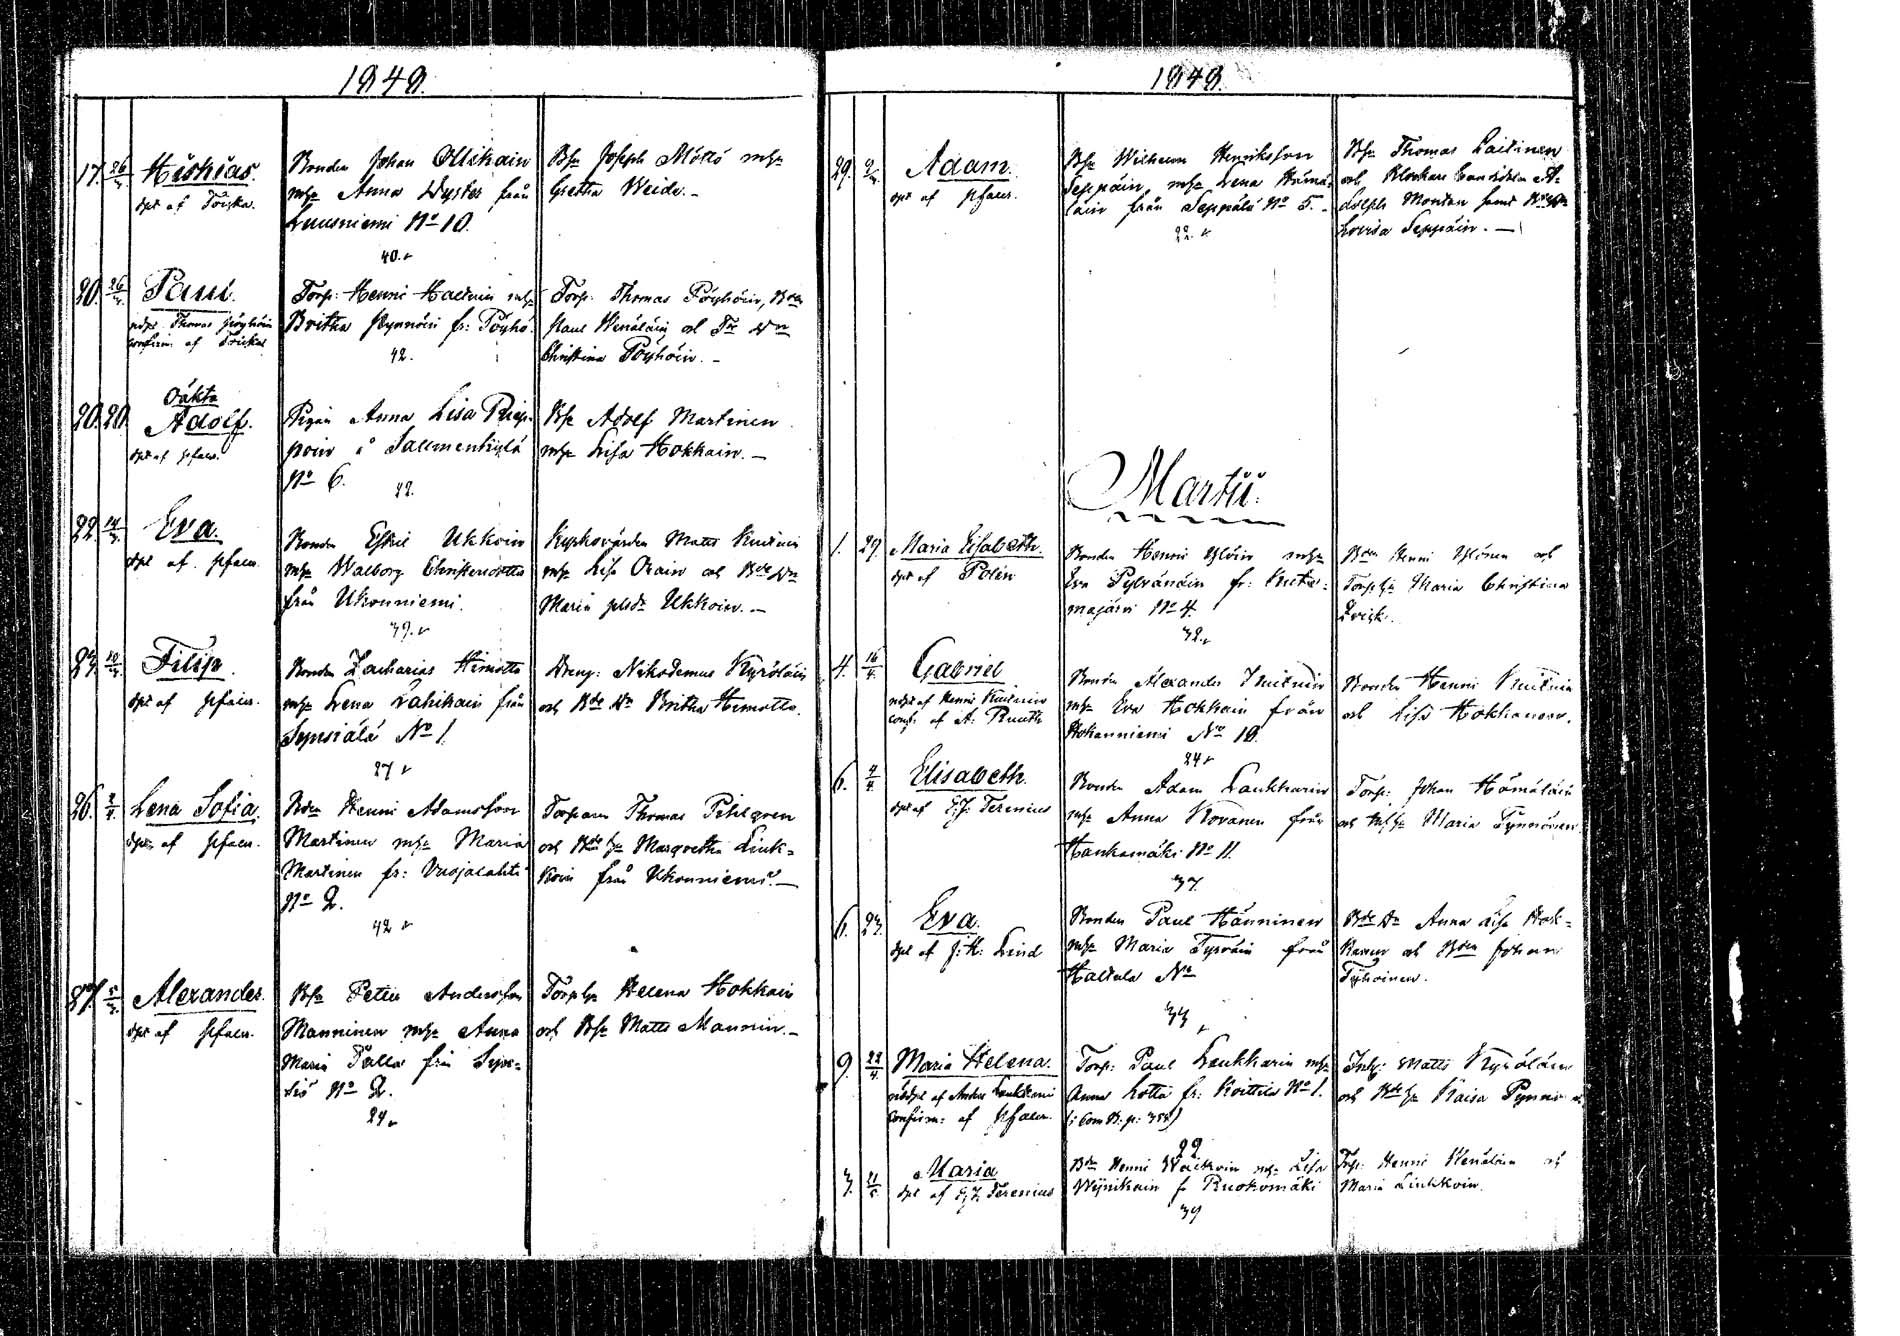 1848.
17. 26/3. Hiskias.
dpt af Toiska.
Bonden Johan Ollikain
mhu Anna Dyster från
Luusniemi No 10.
40.
Bsn Joseph Möttö mhu
Gretha Weide. –
20. 26/3. Paul.
nödpt Thomas Pöyhöin
confirm. af Toiska
Torp: Henric Haltuin mhu
Britha Pynnöin fr: Pöyhö
42.
Torp: Thomas Pöyhöin, Bden
Paul Wenäläin och Tre Dn
Christina Pöyhöin. –
20. 20. Oäkta
Adolf.
dpt af
Pigan Anna Lisa
å Sallmenkylä
No 6.
22.
Bsn Adolf Martinen
mhu Lisa Hokkain. –
22. 14/3. Eva.
dpt af
Bonden Eskil Ukkoin
mhu Walborg Christersdotter
från Ukonniemi.
39.
Kyrkovärden Matts Kuituin
mhu Lisa Orain och Bde Dn
Maria Ukkoin. –
23. 10/3. Filip.
dpt af
Bonden Zacharias Himotto
mhu Lena Lahikain från
Syssiälä No 1.
27
Dreng: Nikodemus Kyröläin
och Bde Dn Britha Himotto.
26. 2/4. Lena Sofia.
dpt af
Bden Henric Adamsson
Martinen mhu Maria
Martinen fr: Vuojalahti
No 2.
42
Torparen Thomas Pihlgren
och Bde hu Margretha Liuk=
koin från Ukonniemi. –
27. 5/3. Alexander.
dpt af
Bsn Petter Andersson
Manninen mhu Anna
Maria Palla från
No 2.
24
Torp hu Helena Hokkain
och Bsn Matts Mannin. –
1848.
29. 2/3. Adam.
dpt af
Bsn Wilhelm Henriksson
Seppäin mhu Lena Hämä=
läin från Seppälä No 5. –
22.
Bsn Thomas Laitinen
och Klockare Candidaten A=
dolph Montan samt
Lovisa Seppäin. –
Martii.
1. 29. Maria Elisabeth.
dpt af Polén
Bonden Henric Ylöin mhu
Eva Pylvänäin fr:
majärvi No 4.
32.
Bden Henric Ylönen och
Torp hu Maria Christina
4. 16/4. Gabriel
nödpt af Henric Kuituin
conf. af A: Ruuth
Bonden Alexander Kuituin
mhu Eva Hokkain från
Hokanniemi No 10.
24
Bonden Henric Kuituin
och Lisa Hokkanen.
6. 4/4. Elisabeth.
dpt af G.J: Ferenius
Bonden Adam Laukkarin
mhu Anna Kovanen från
Hankamäki No 11.
37.
Torp: Johan Hämäläin
och Maria Tynnönen.
6. 23. Eva.
dpt af J: H: Lind
Bonden Paul Hänninen
mhu Maria Tyrväin från
Haltula No
33
Bde Dn Anna Lisa Hok=
kanen och Bden Johan
9. 22/4. Maria Helena.
nödpt af Anders Laukkarin
confirm: af
Torp: Paul Laukkarin mhu
Anna Lotta fr: Koittila No 1.
(: Com. B: p: 352)
29
Inh: Matts Kyröläin
och Bde hu Kaisa
3. 21/5. Maria
dpt af G. J. Ferenius
Bden Henric Wäikoin mhu Lisa
Wijnikain fr Ruokomäki
34
Torp: Henric Wenäläin och
Maria Liukkoin.